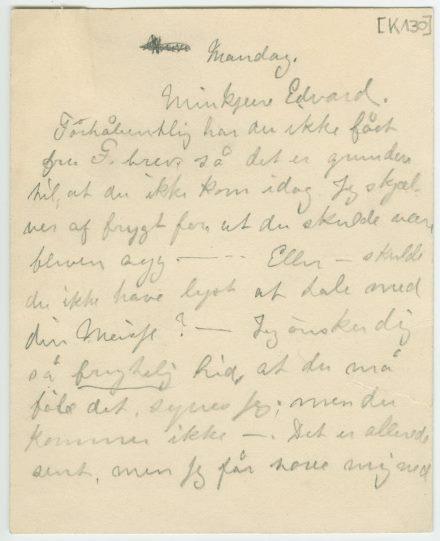 [K130]
Mandag.
Min kjære Edvard.
Förhåbentlig har du ikke fået
fru G. brev så det er grunden
til, at du ikke kom idag. Jeg skjæl-
ver af frygt for, at du skulde være
bleven syg — - - - Eller — skulde
du ikke have lyst at tale med
din ? — Jeg önsker dig
så frygtelig hid, at du må
föle det, synes jeg; men du
kommer ikke —. Det er allerede
sent, men jeg får mig ned